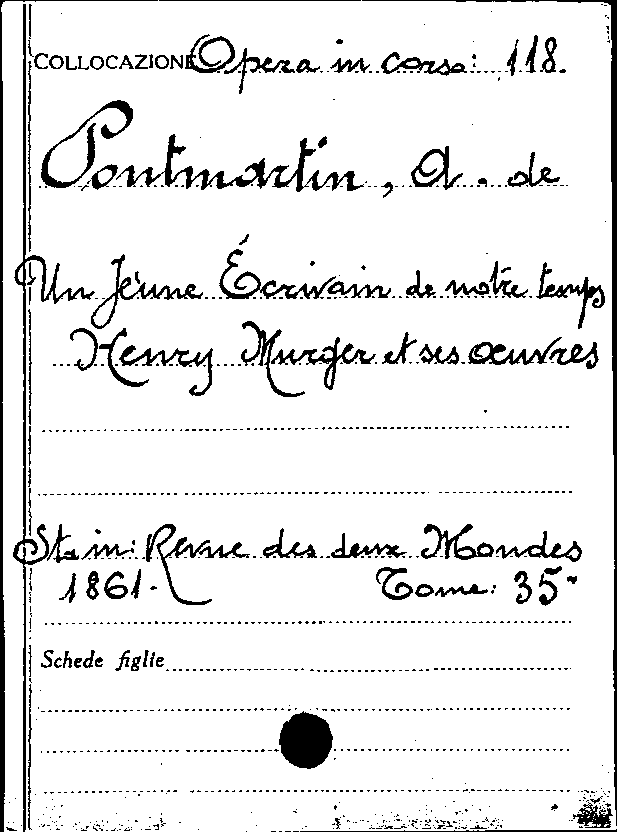 COLLOCAZIONE Opera in corso: 118.
Pontmartin, A. de
Un Jeune Écrivain de notre temps
Henry Murger et ses œuvres
St. in: Revue des deux Mondes
1861. Tome: 35
Schede figlie